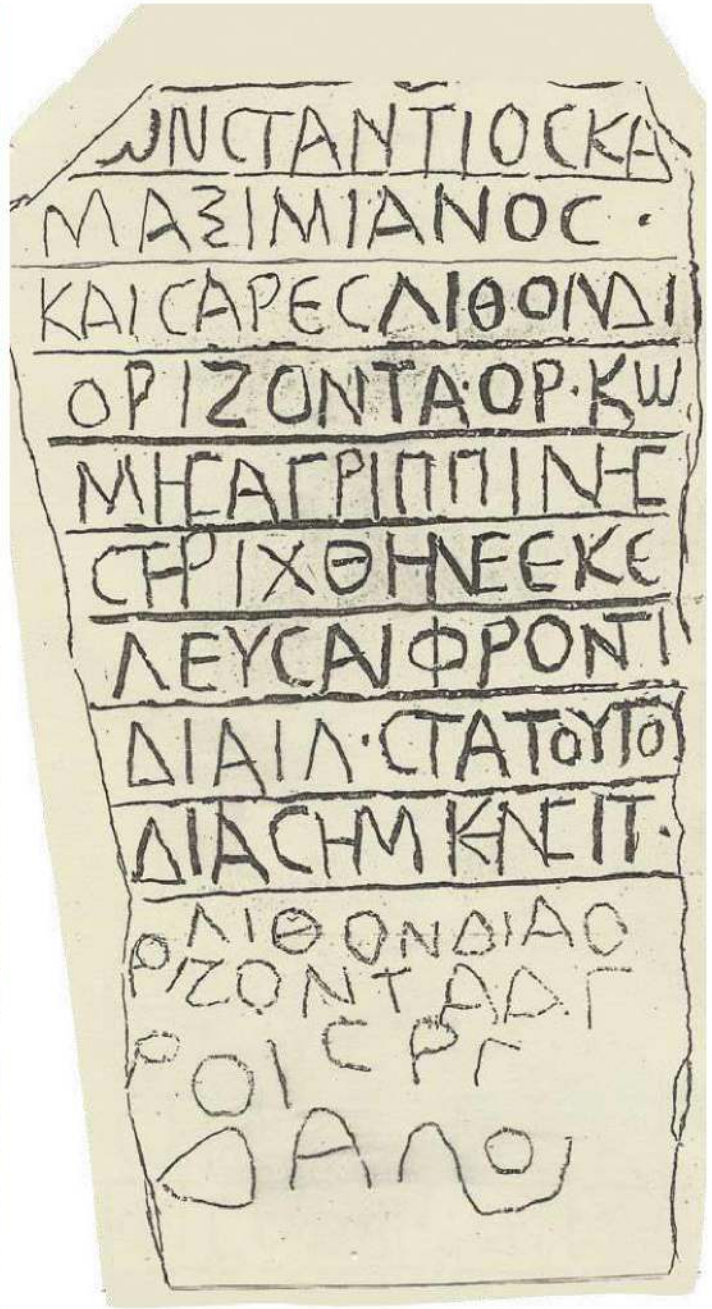 ΩΝCΤΑΝΤΙΟCΚΑ
ΜΑΞΙΜΙΑΝΟC ·
ΚΑΙCΑΡΕCΛΙΘΟΝΔΙ
ΟΡΙΖΟΝΤΑ·ΟΡ·ΚΩ
ΜΗCΑΓΡΙΠΠΙΝΗC
CΤΗΡΙΧΘΗΝΕΕΚΕ
ΛΕΥCΑΝΦΡΟΝΤΙ
ΔΙΑΙΛ·CΤΑΤΟΥΤΟΥ
ΔΙΑCΗΜ ΚΗΝCΙΤ·
ΛΙΘΟΝΔΙΑΟ
ΡΙΖΟΝΤΑΑΓ
ΡΟΙC